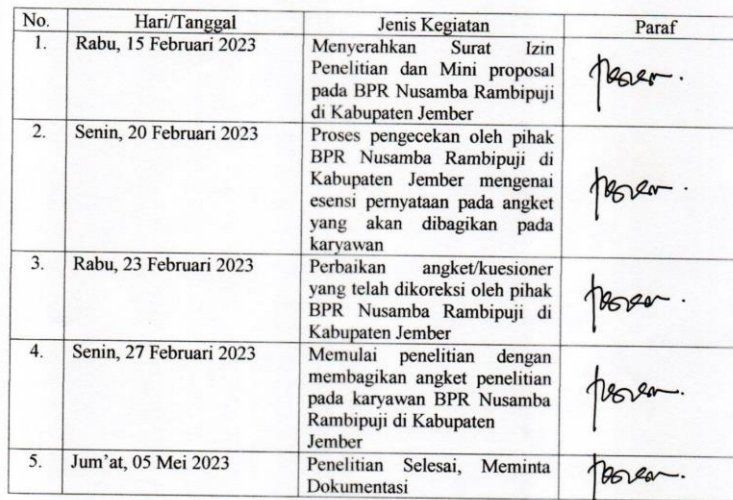 No. Hari/Tanggal Jenis Kegiatan Paraf
1. Rabu, 15 Februari 2023 Menyerahkan Surat Izin
Penelitian dan Mini proposal
pada BPR Nusamba Rambipuji
di Kabupaten Jember
2. Senin, 20 Februari 2023 Proses pengecekan oleh pihak
BPR Nusamba Rambipuji di
Kabupaten Jember mengenai
esensi pernyataan pada angket
yang akan dibagikan pada
karyawan
3. Rabu, 23 Februari 2023 Perbaikan angket/kuesioner
yang telah dikoreksi oleh pihak
BPR Nusamba Rambipuji di
Kabupaten Jember
4. Senin, 27 Februari 2023 Memulai penelitian dengan
membagikan angket penelitian
pada karyawan BPR Nusamba
Rambipuji di Kabupaten
Jember
5. Jum'at, 05 Mei 2023 Penelitian Selesai, Meminta
Dokumentasi